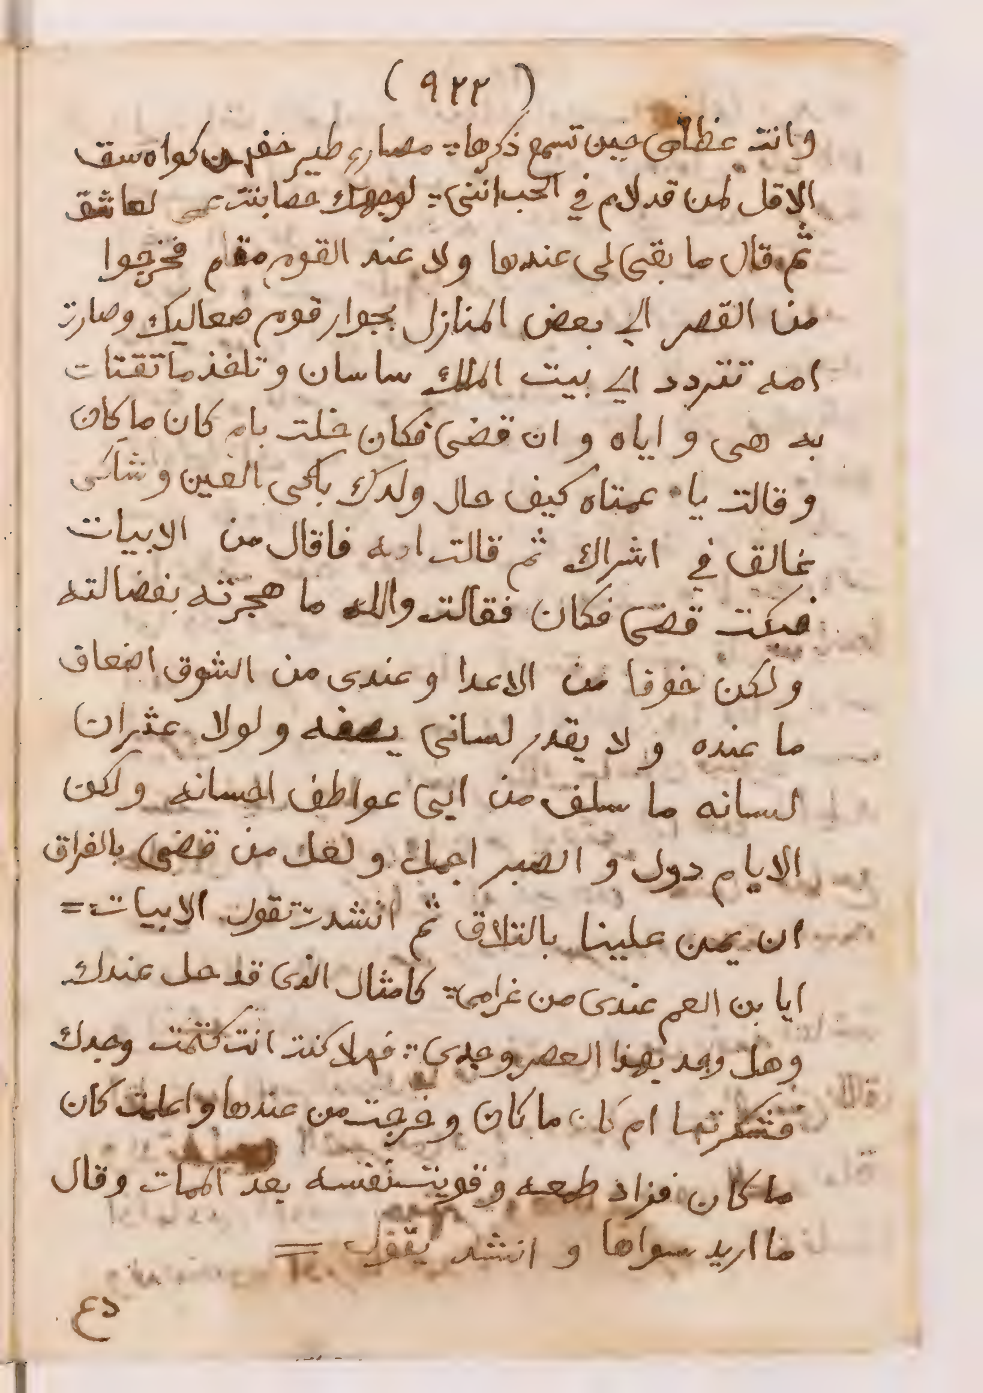 ( ٩٢٢ )
وانت عظامى حين تسمع ذكرها : مصارع طير خفهن كواسق
الاقل لمن قد لام في الحب اننى : لوجهك حصابنت عمى لعاشق
ثم قال ما بقى لى عندها ولا عند القوم مقام فخرجوا
من القصر الي بعض المنازل بجوار قوم صعاليك وصارت
امه تتردد الي بيت الملك ساسان وتاخذ ما تقتات
به هى و اياه و ان قضى فكان خلت بام كان ما كان
و قالت يا عمتاه كيف حال ولدك باكى العين وشاكى
غالق في اشراك ثم قالت امه فاقال من الابيات
فبكت قضى فكان فقالت والله ما هجرته بفضالته
ولكن خوفا من الاعدا وعندى من الشوق اضعاف
ما عنده ولا يقدر لسانى يصفه ولولا عثران
لسانه ما سلف من ابى عواطف احسانه ولكن
الايام دول و الصبر اجمل ولعل من قضى بالفراق
ان يمن علينا بالتلاق ثم انشدت تقول الابيات =
ايا بن العم عندى من غرامى : كامثال الذى قد حل عندك
وهل وجد بهذا العصر وجدى : فهلا كنت انت كتمت وجدك
فشكرتها ام كان ما كان وخرجت من عندها واعلمت كان
ما كان فزاد طمعه وقويت نفسه بعد الممات وقال
ما اريد سواها و انشد يقول =
دع